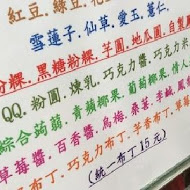 紅豆.綠豆.花
雪蓮子.仙草.愛玉.薏仁.
粉粿.黑糖粉粿.芋圓.地瓜圓.自製
QQ.粉圓.煉乳.巧克力醬.巧克
綜合蒟蒻.青蘋椰果.葡萄椰果.情人
草莓醬.百香醬.烏梅.桑葚.李鹹.鳳
布丁.巧克力布丁.芋香布丁.草莓布
(統一布丁15元)